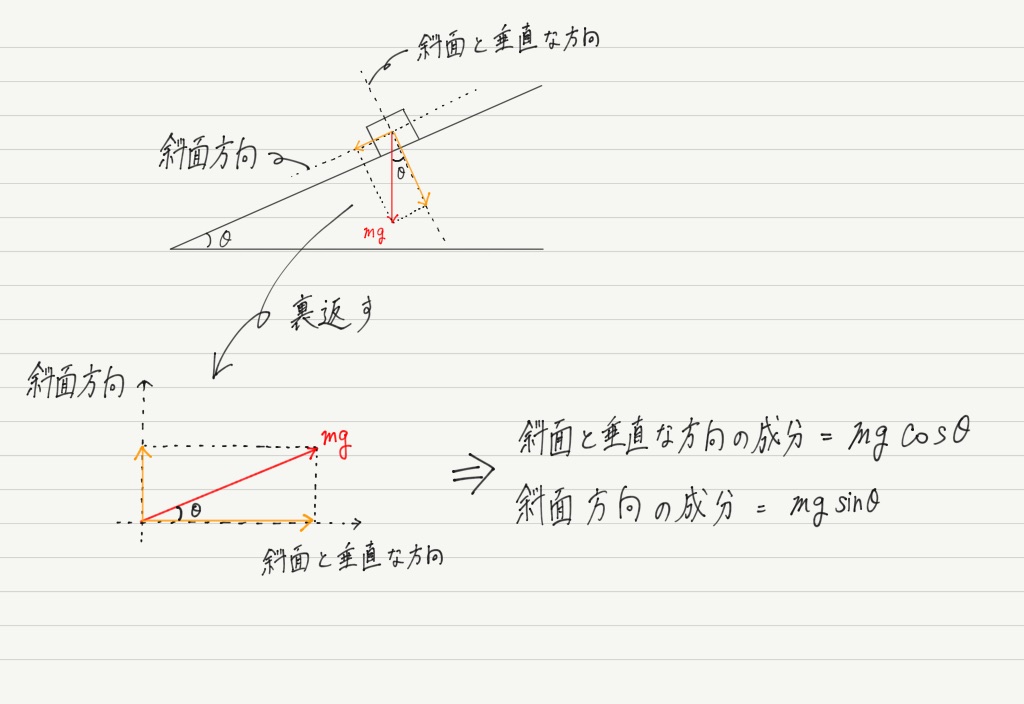 斜面と垂直な方向
斜面方向
θ
mg
θ
裏返す
斜面方向
mg
θ
斜面と垂直な方向
⇒ 斜面と垂直な方向の成分 = mg cosθ
斜面方向の成分 = mg sinθ